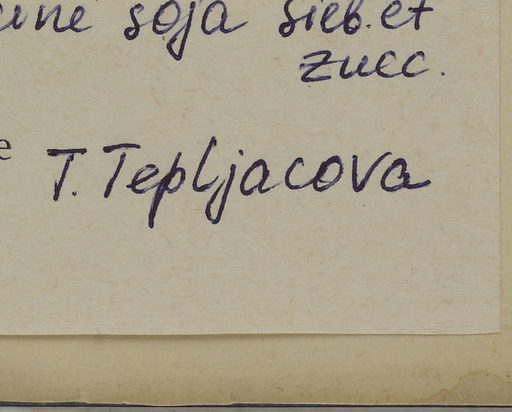 soja Sieb. et
zucc.
e T. Tepljacova